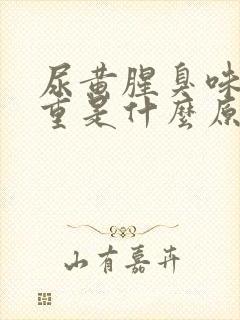 尿黄腥臭味
重是什麼原
山有嘉卉